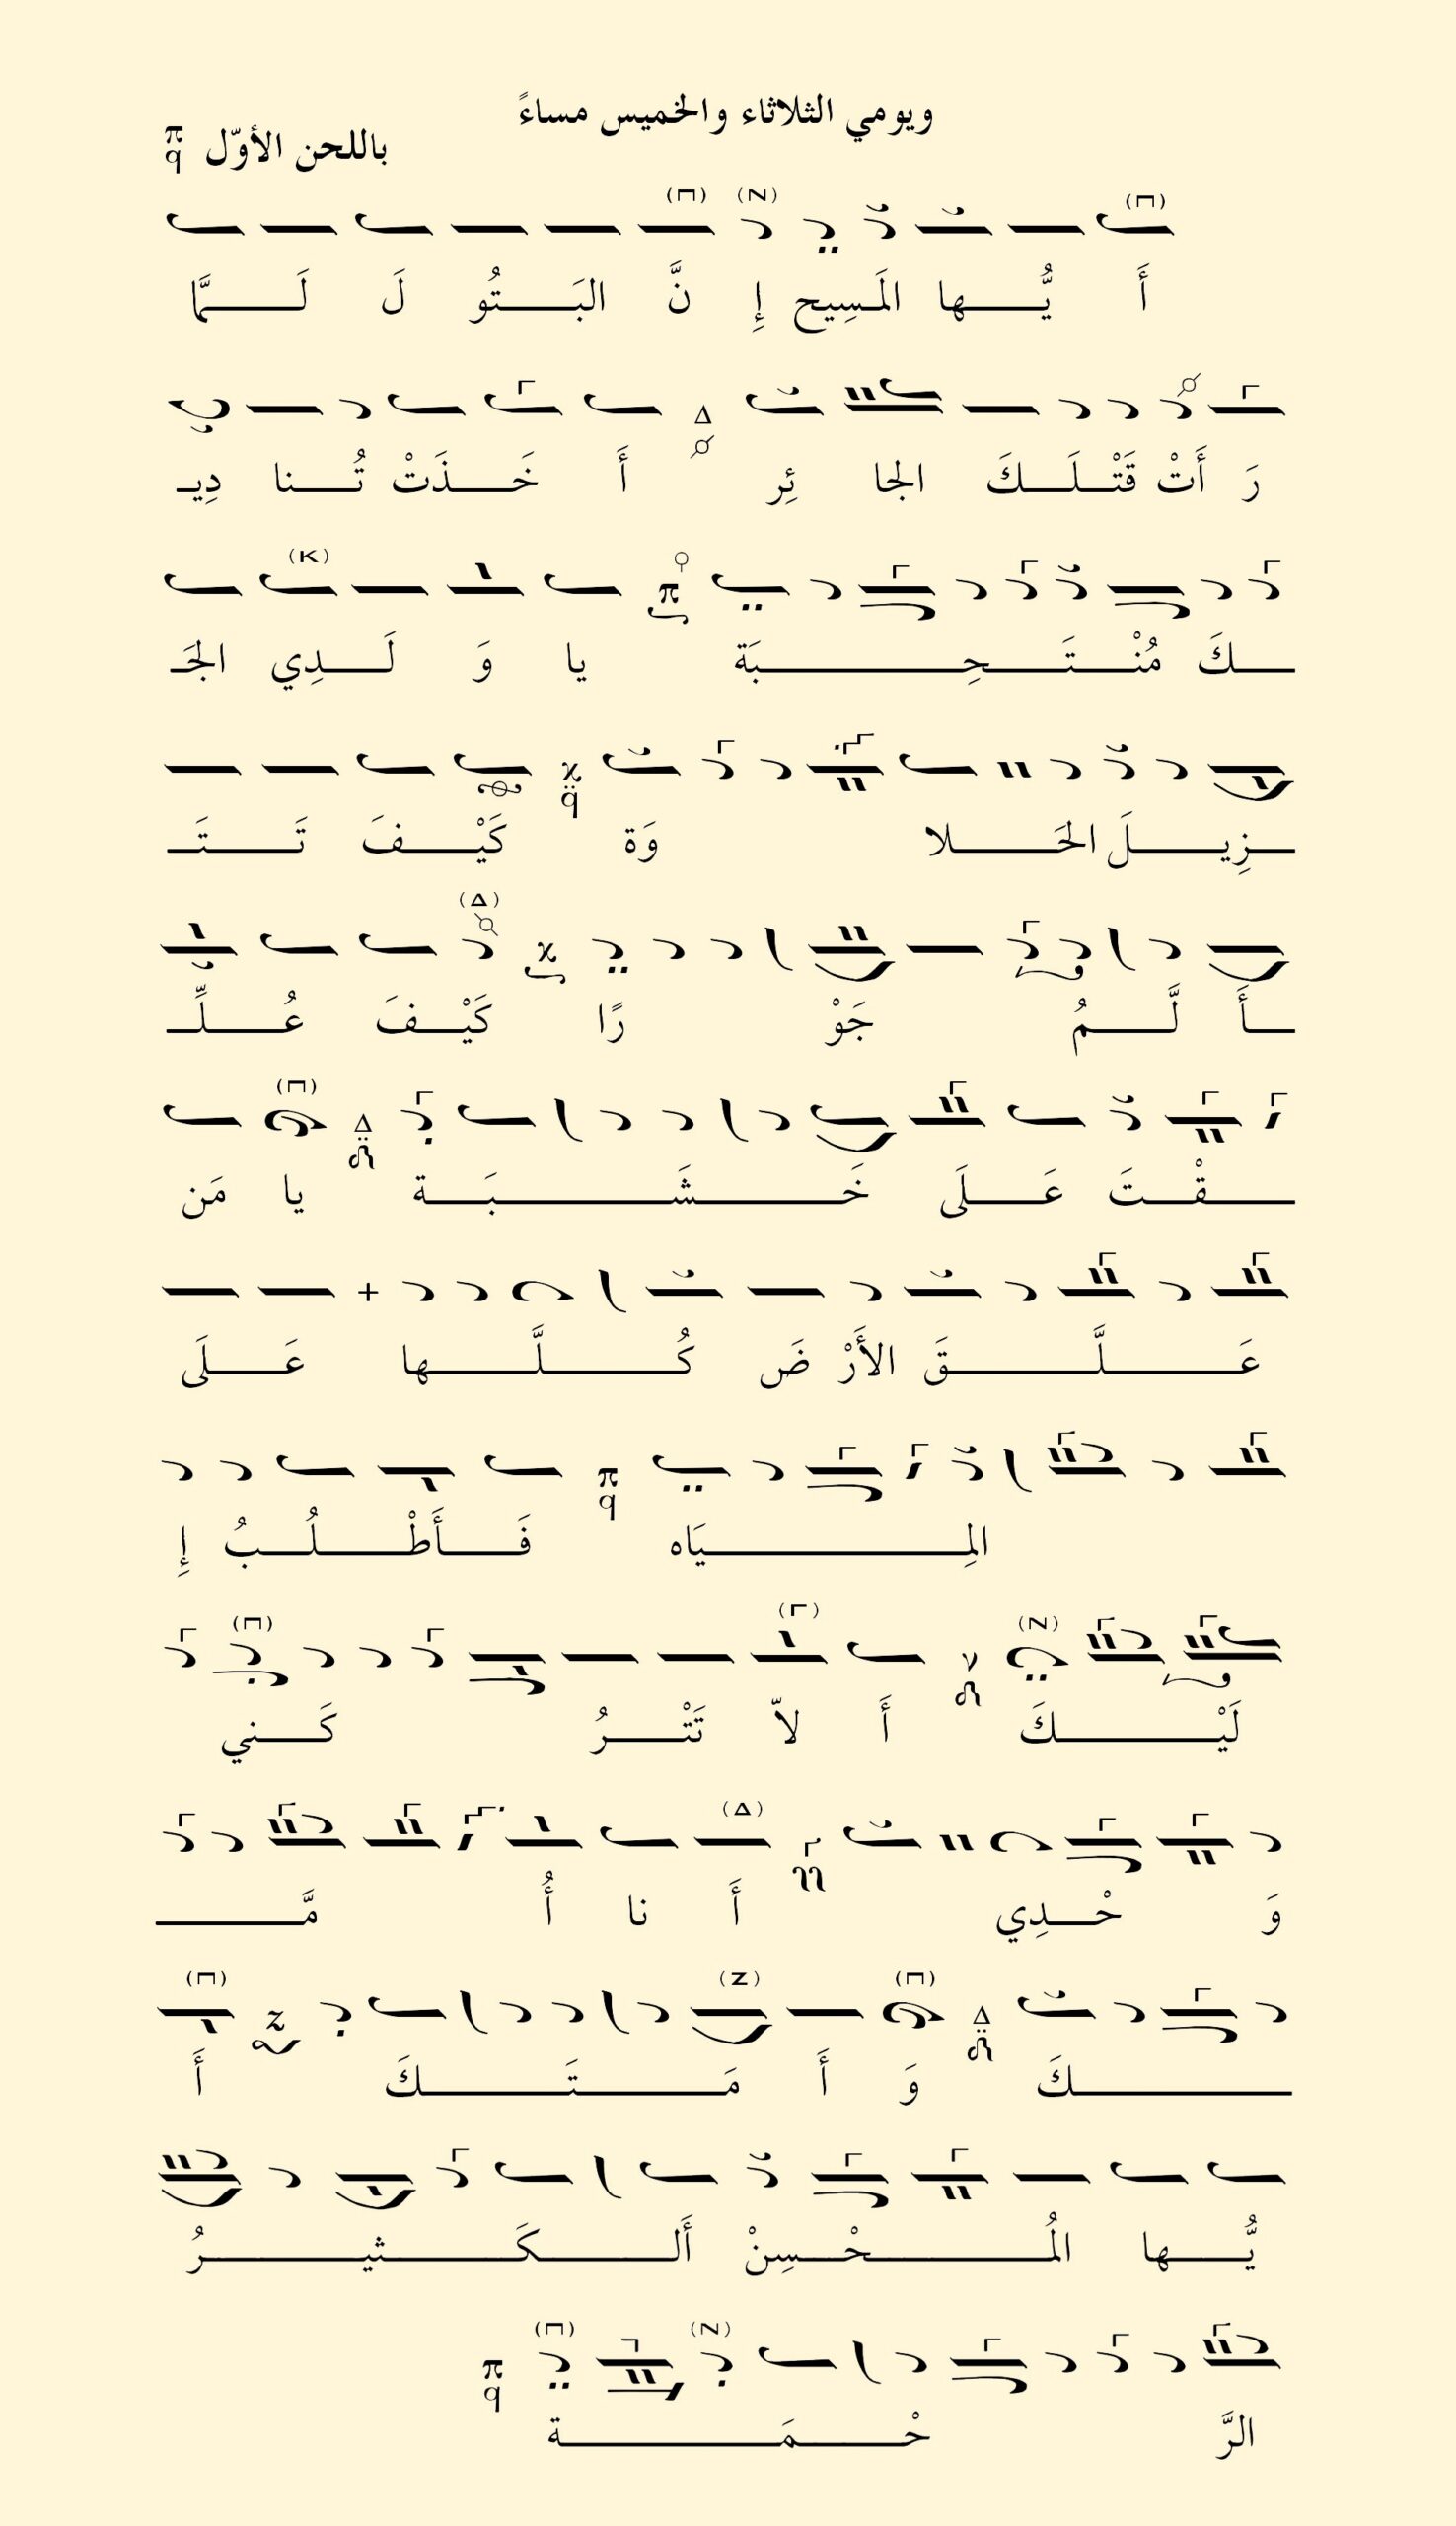 ويومي الثلاثاء والخميس مساءً
باللحن الأوّل
أَ يُّـــها المَـسِيح إِ نَّ البَـــتُو لَ لَـــمَّا
رَ أَتْ قَتْـلَـكَ الجا ئِر أَ خَـــذَتْ تُـــنا دِيـ
ـــكَ مُنْـــتَـــحِـــبَة يا وَ لَـــدِي الجَـ
ـــزِيـــلَ الحَـــلا وَة كَيْـــفَ تَـــتَـ
ـــأَ لَّـــمُ جَوْ رًا كَيْـــفَ عُـــلِّـ
ـــقْـــتَ عَـــلَى خَـــشَـــبَـــة يا مَن
عَـــلَّـــقَ الأَرْ ضَ كُـــلَّـــها عَـــلَى
المِـــيَاه فَـــأَطْـــلُـــبُ إِ
لَيْـــكَ أَ لاّ تَتْـــرُ كَـــني
وَ حْـــدِي أَ نا أُ مَّـــ
ـــكَ وَ أَ مَـــتَـــكَ أَ
يُّـــها المُـــحْـــسِنْ أَلـــكَـــثيـــرُ
الرَّ حْـــمَـــة